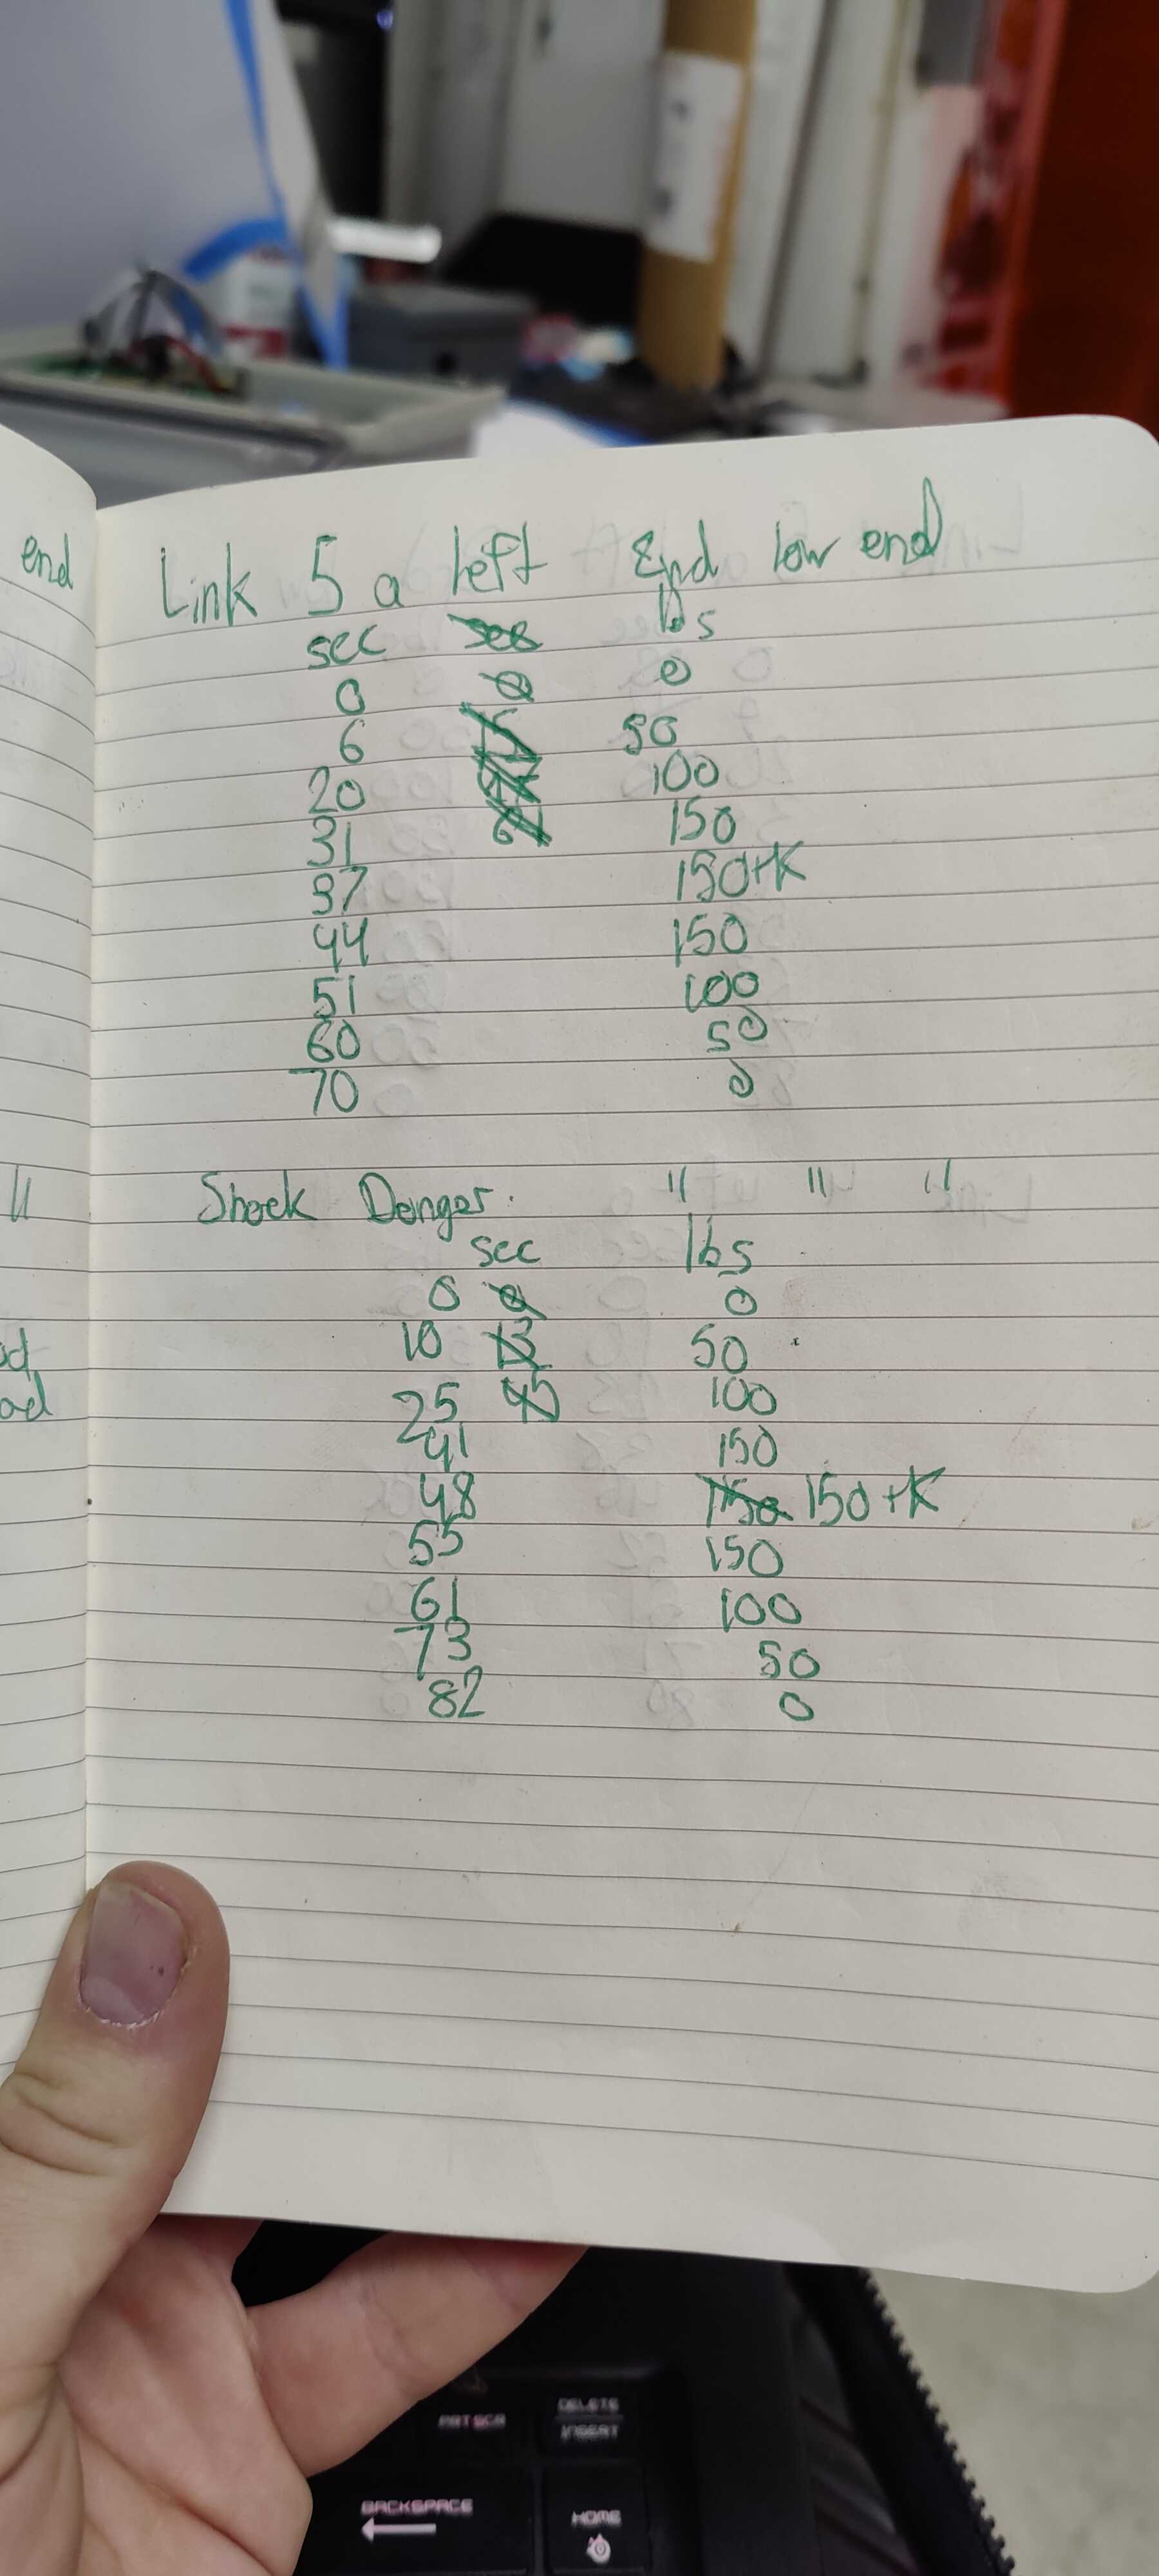 end
Link 5 a left End low end
sec sec lbs
0 0 0
6 50
20 100
31 150
37 150+K
44 150
51 100
60 50
70 0
Shock Danger. " " "
sec lbs
0 0 0
10 13 50
25 45 100
41 150
48 150 150+K
55 150
61 100
73 50
82 0
PRT SCR
DELETE
INSERT
BACKSPACE
HOME